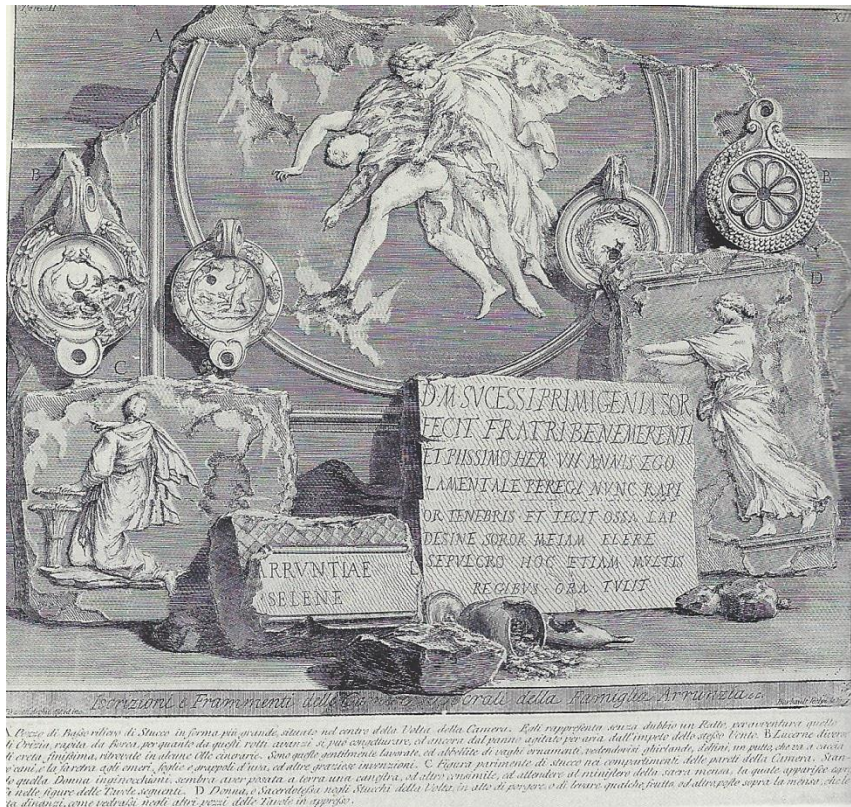 Tom. II
XII
A
B
B
C
D
D. M. SVCESSI PRIMIGENIA SOR
FECIT FRATRI BENEMERENTI
ET PIISSIMO HER VII ANNIS EGO
LAMENTALE PEREGI NVNC RAPI
OR TENEBRIS ET TEGIT OSSA LAI
DESINE SOROR MEIAM FLERE
SEPVLCRO HOC ETIAM MVLTIS
REGIBVS ORA TVLIT
ARRVNTIAE L
SELENE
Iscrizioni e Frammenti delle Camere della Famiglia Arrunzia
A Pezzo di Basso rilievo di Stucco in forma più grande, situato nel centro della Volta della Camera. Egli rappresenta senza dubbio un Ratto, per avventura quello
di Orizia rapita da Borea, per quanto da questi rotti avanzi si può congetturare, ed ancora dal panno agitato per aria dall'impeto dello stesso Vento. B Lucerne diverse
di creta, finissima, ritrovate in alcune Olle cinerarie. Sono queste gentilmente lavorate, ed abbellite di vaghi ornamenti, vedendovisi ghirlande, delfini, un putto, che va a caccia
col cane, e la foglie, e grappoli d'uva, ed altre graziose invenzioni. C Figura parimente di stucco nei compartimenti delle pareti della Camera. Stan-
do quella Donna inginocchiata, sembra aver posata a terra una canestra, od altro consimile, ed attendere al ministero della sacra mensa, la quale apparisce
nelle figure delle Tavole seguenti. D Donna, o Sacerdotessa negli Stucchi della Volta, in atto di porgere, o di levare qualche frutta, od altra posta sopra la mensa, che le
sta dinanzi, come vedrassi negli altri pezzi delle Tavole in appresso.